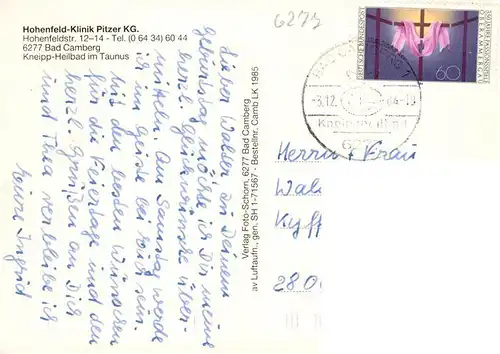 Hohenfeld-Klinik Pitzer KG.
Hohenfeldstr. 12–14 - Tel. (0 64 34) 60 44
6277 Bad Camberg
Kneipp-Heilbad im Taunus
Lieber Walter, zu Deinem
Geburtstag möchte ich Dir meine
herzl. Glückwünsche über-
mitteln. Am Samstag werde
ich im Geiste bei Euch sein.
Mit den besten Wünschen
für die Feiertage und den
herzl. Grüßen an Dich
und Thea verbleibe ich
Eure Ingrid
Verlag Foto-Schorn, 6277 Bad Camberg
av Luftaufn., gen. SH 1-71567 - Bestellnr. Camb LK 1985
DEUTSCHE BUNDESPOST
60
-3.12.
84-18
Kneippheilbad
627
Herrn + Frau
Wal
Kyff
280